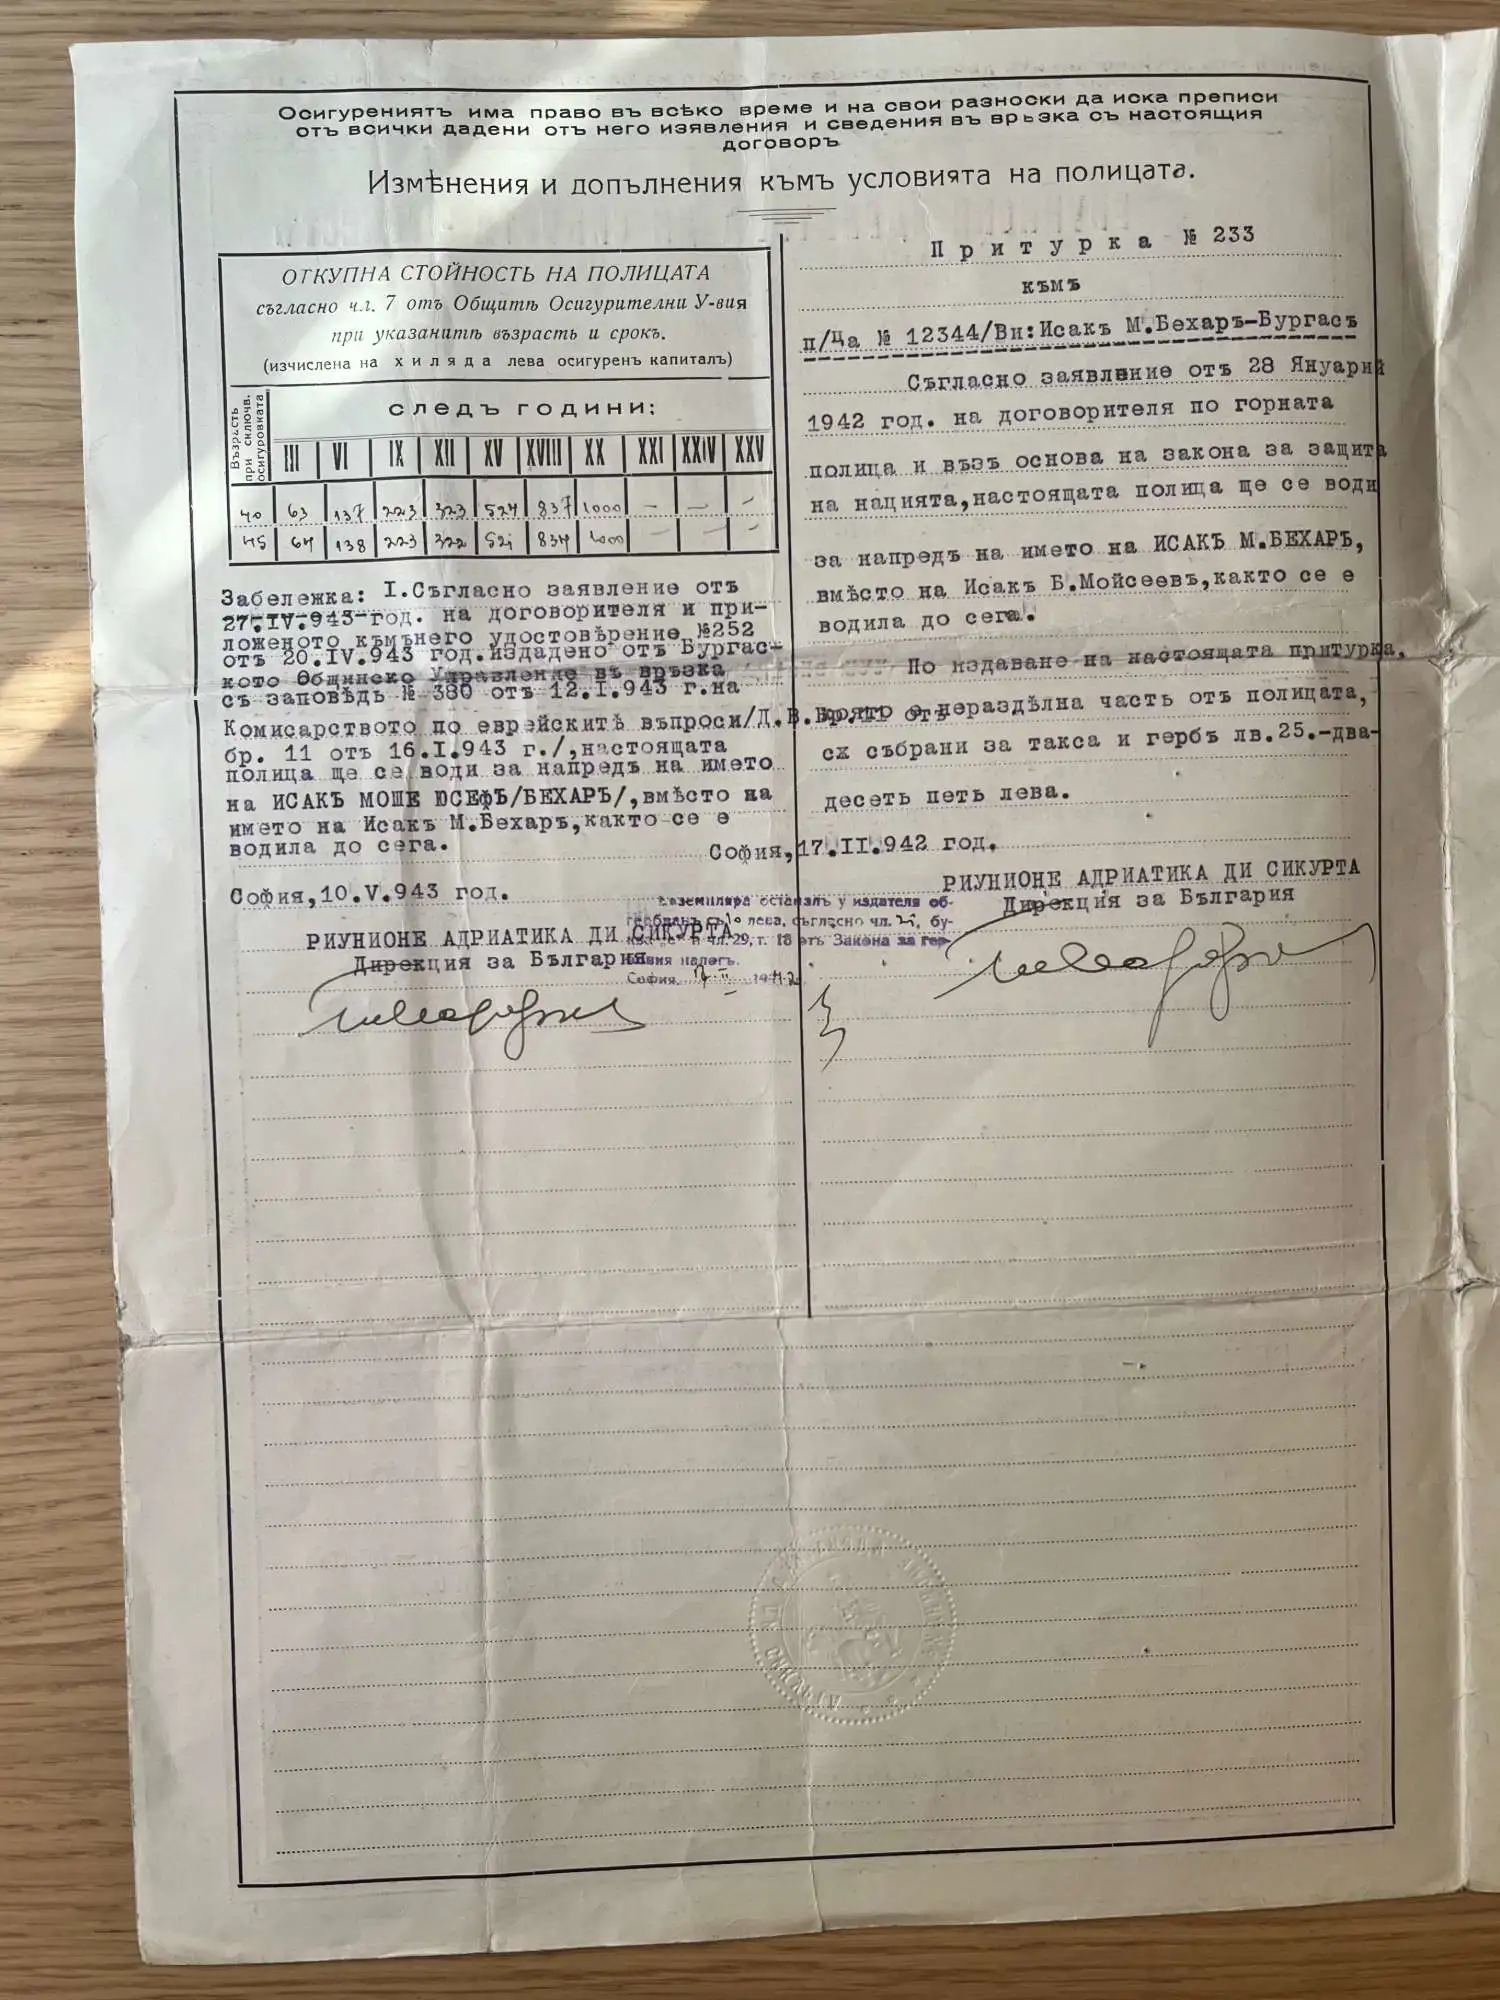 Осигурениятъ има право въ всѣко време и на свои разноски да иска преписи
отъ всички дадени отъ него изявления и сведения въ връзка съ настоящия
договоръ
Измѣнения и допълнения къмъ условията на полицата.
ОТКУПНА СТОЙНОСТЬ НА ПОЛИЦАТА
съгласно чл. 7 отъ Общитѣ Осигурителни У-вия
при указанитѣ възрасть и срокъ.
(изчислена на хиляда лева осигуренъ капиталъ)
Възрасть
при сключв.
осигуровката
СЛЕДЪ ГОДИНИ:
III VI IX XII XV XVIII XX XXI XXIV XXV
40 63 137 223 323 524 837 1000 — — —
45 64 138 223 322 521 834 1000 — — —
Забележка: I.Съгласно заявление отъ
27.IV.943 год. на договорителя и при-
ложеното къмънего удостовѣрение №252
отъ 20.IV.943 год.издадено отъ Бургас-
кото Общинско Управление въ връзка
съ заповѣдь № 380 отъ 12.I.943 г.на
Комисарството по еврейскитѣ въпроси/Д.В.бр.11 отъ
бр. 11 отъ 16.I.943 г./,настоящата
полица ще се води за напредъ на името
на ИСАКЪ МОШЕ ЮСЕФЪ/БЕХАРЪ/,вмѣсто на
името на Исакъ М.Бехаръ,както се е
водила до сега.
София,10.V.943 год.
РИУНИОНЕ АДРИАТИКА ДИ СИКУРТА
Дирекция за България
Притурка № 233
къмъ
п/ца № 12344/Ви:Исакъ М.Бехаръ-Бургасъ
Съгласно заявление отъ 28 Януарий
1942 год. на договорителя по горната
полица и възъ основа на закона за защита
на нацията,настоящата полица ще се води
за напредъ на името на ИСАКЪ М.БЕХАРЪ,
вмѣсто на Исакъ Б.Мойсеевъ,както се е
водила до сега.
По издаване на настоящата притурка,
която е нераздѣлна часть отъ полицата,
сѫ събрани за такса и гербъ лв.25.-два-
десеть петь лева.
София,17.II.942 год.
РИУНИОНЕ АДРИАТИКА ДИ СИКУРТА
Дирекция за България
екземпляра останалъ у издателя об-
гербванъ съ 10 лева, съгласно чл. 25, бу-
ква „е“ и чл. 29, т. 18 отъ Закона за гер-
бовия налогъ.
София, 17.II 1942